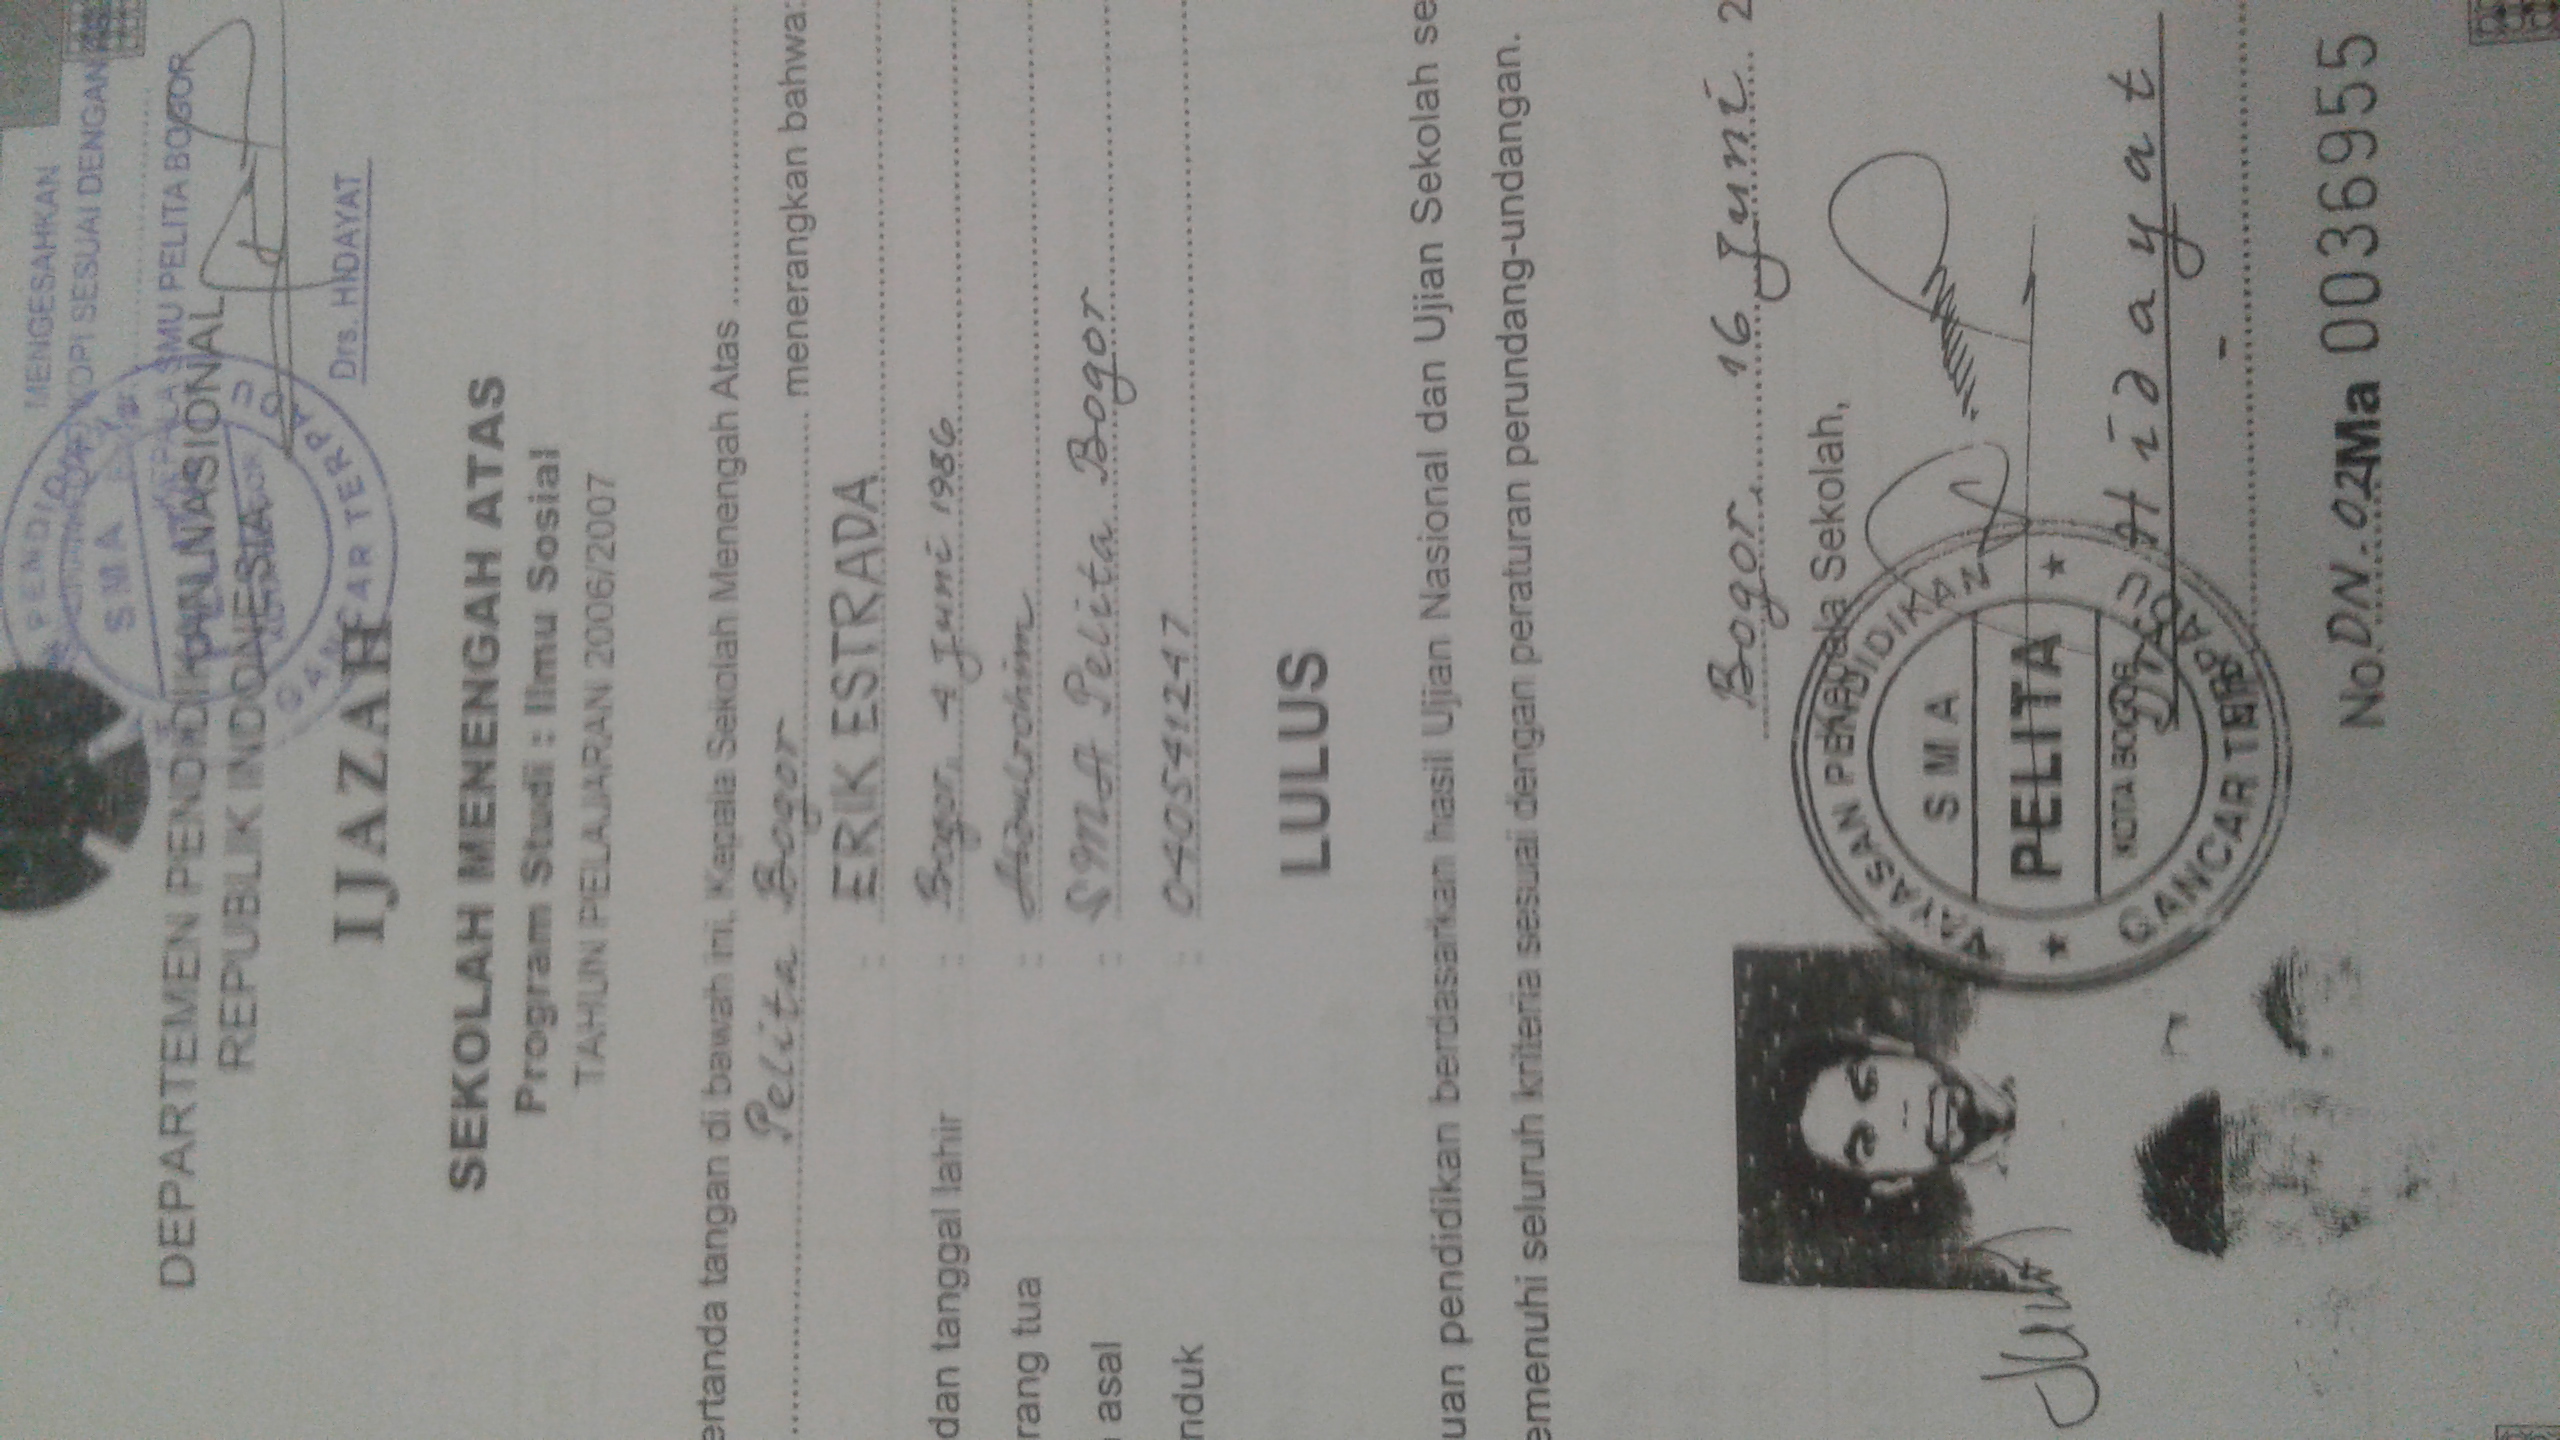 MENGESAHKAN
KOPI SESUAI DENGAN
KEPALA SMU PELITA BOGOR
Drs. HIDAYAT
SMA
DEPARTEMEN PENDIDIKAN NASIONAL
REPUBLIK INDONESIA
GANCAR TERPADU
IJAZAH
SEKOLAH MENENGAH ATAS
Program Studi : Ilmu Sosial
TAHUN PELAJARAN 2006/2007
ertanda tangan di bawah ini, Kepala Sekolah Menengah Atas
Pelita Bogor menerangkan bahwa:
: ERIK ESTRADA
dan tanggal lahir : Bogor, 4 Juni 1986
rang tua : Abdulrohim
asal : SMA Pelita Bogor
nduk : 040541247
LULUS
uan pendidikan berdasarkan hasil Ujian Nasional dan Ujian Sekolah se
emenuhi seluruh kriteria sesuai dengan peraturan perundang-undangan.
Bogor, 16 Juni 2
Kepala Sekolah,
YAYASAN PENDIDIKAN
SMA
PELITA
KOTA BOGOR
GANCAR TERPADU
Drs. Hidayat
No. DN-02 Ma 0036955